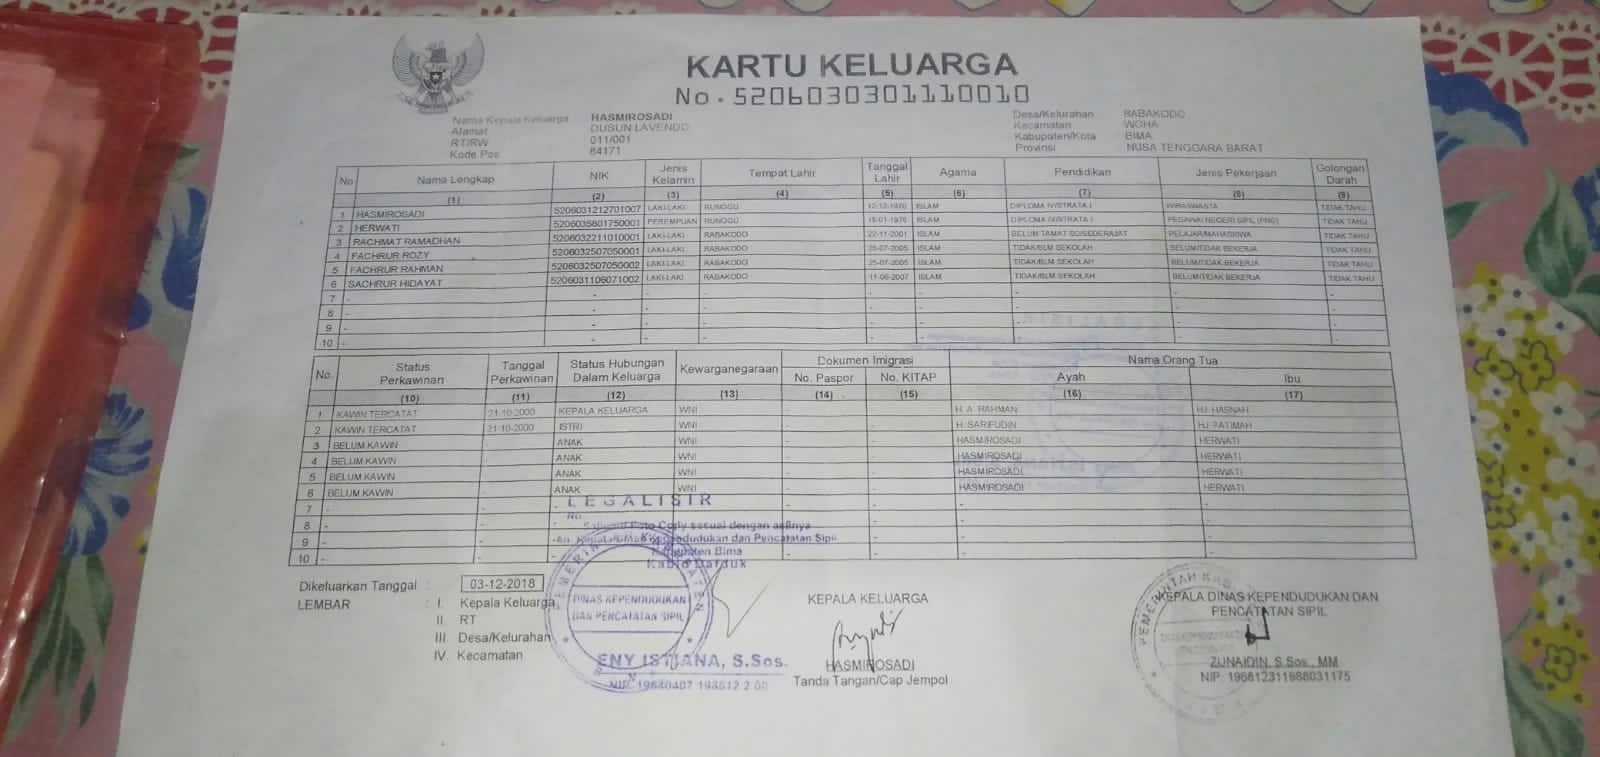 KARTU KELUARGA
No. 5206030301110010
Nama Kepala Keluarga HASMIROSADI
Alamat DUSUN LAVENDO
RT/RW 011/001
Kode Pos 84171
Desa/Kelurahan RABAKODO
Kecamatan WOHA
Kabupaten/Kota BIMA
Provinsi NUSA TENGGARA BARAT
No Nama Lengkap NIK Jenis Kelamin Tempat Lahir Tanggal Lahir Agama Pendidikan Jenis Pekerjaan Golongan Darah
(1) (2) (3) (4) (5) (6) (7) (8) (9)
1 HASMIROSADI 5206031212701007 LAKI-LAKI RUNGGU 12-12-1970 ISLAM DIPLOMA IV/STRATA I WIRASWASTA TIDAK TAHU
2 HERWATI 5206035801750001 PEREMPUAN RUNGGU ISLAM DIPLOMA IV/STRATA I PEGAWAI NEGERI SIPIL (PNS) TIDAK TAHU
3 RACHMAT RAMADHAN 5206032211010001 LAKI-LAKI RABAKODO 22-11-2001 ISLAM BELUM TAMAT SD/SEDERAJAT PELAJAR/MAHASISWA TIDAK TAHU
4 FACHRUR ROZY 5206032507050001 LAKI-LAKI RABAKODO 25-07-2005 ISLAM TIDAK/BLM SEKOLAH BELUM/TIDAK BEKERJA TIDAK TAHU
5 FACHRUR RAHMAN 5206032507050002 LAKI-LAKI RABAKODO 25-07-2005 ISLAM TIDAK/BLM SEKOLAH BELUM/TIDAK BEKERJA TIDAK TAHU
6 SACHRUR HIDAYAT 5206031106071002 LAKI-LAKI RABAKODO 11-06-2007 ISLAM TIDAK/BLM SEKOLAH BELUM/TIDAK BEKERJA TIDAK TAHU
7 - - - - - - - - -
8 - - - - - - - - -
9 - - - - - - - - -
10 - - - - - - - - -
No. Status Perkawinan Tanggal Perkawinan Status Hubungan Dalam Keluarga Kewarganegaraan Dokumen Imigrasi Nama Orang Tua
No. Paspor No. KITAP Ayah Ibu
(10) (11) (12) (13) (14) (15) (16) (17)
1 KAWIN TERCATAT 21-10-2000 KEPALA KELUARGA WNI - - H. A. RAHMAN HJ. HASNAH
2 KAWIN TERCATAT 21-10-2000 ISTRI WNI - - H. SARIFUDIN HJ. FATIMAH
3 BELUM KAWIN - ANAK WNI - - HASMIROSADI HERWATI
4 BELUM KAWIN - ANAK WNI - - HASMIROSADI HERWATI
5 BELUM KAWIN - ANAK WNI - - HASMIROSADI HERWATI
6 BELUM KAWIN - ANAK WNI - - HASMIROSADI HERWATI
7 - - - - - - - -
8 - - - - - - - -
9 - - - - - - - -
10 - - - - - - - -
LEGALISIR
No.
Foto Copy sesuai dengan aslinya
An. Kepala Dinas Kependudukan dan Pencatatan Sipil
Kabupaten Bima
Kabid Dafduk
DINAS KEPENDUDUKAN
DAN PENCATATAN SIPIL
ENY ISTIANA, S.Sos.
NIP. 19680407 198612 2 00
Dikeluarkan Tanggal : 03-12-2018
LEMBAR : I. Kepala Keluarga
II. RT
III. Desa/Kelurahan
IV. Kecamatan
KEPALA KELUARGA
HASMIROSADI
Tanda Tangan/Cap Jempol
KEPALA DINAS KEPENDUDUKAN DAN
PENCATATAN SIPIL
ZUNAIDIN, S.Sos., MM
NIP. 196612311988031175